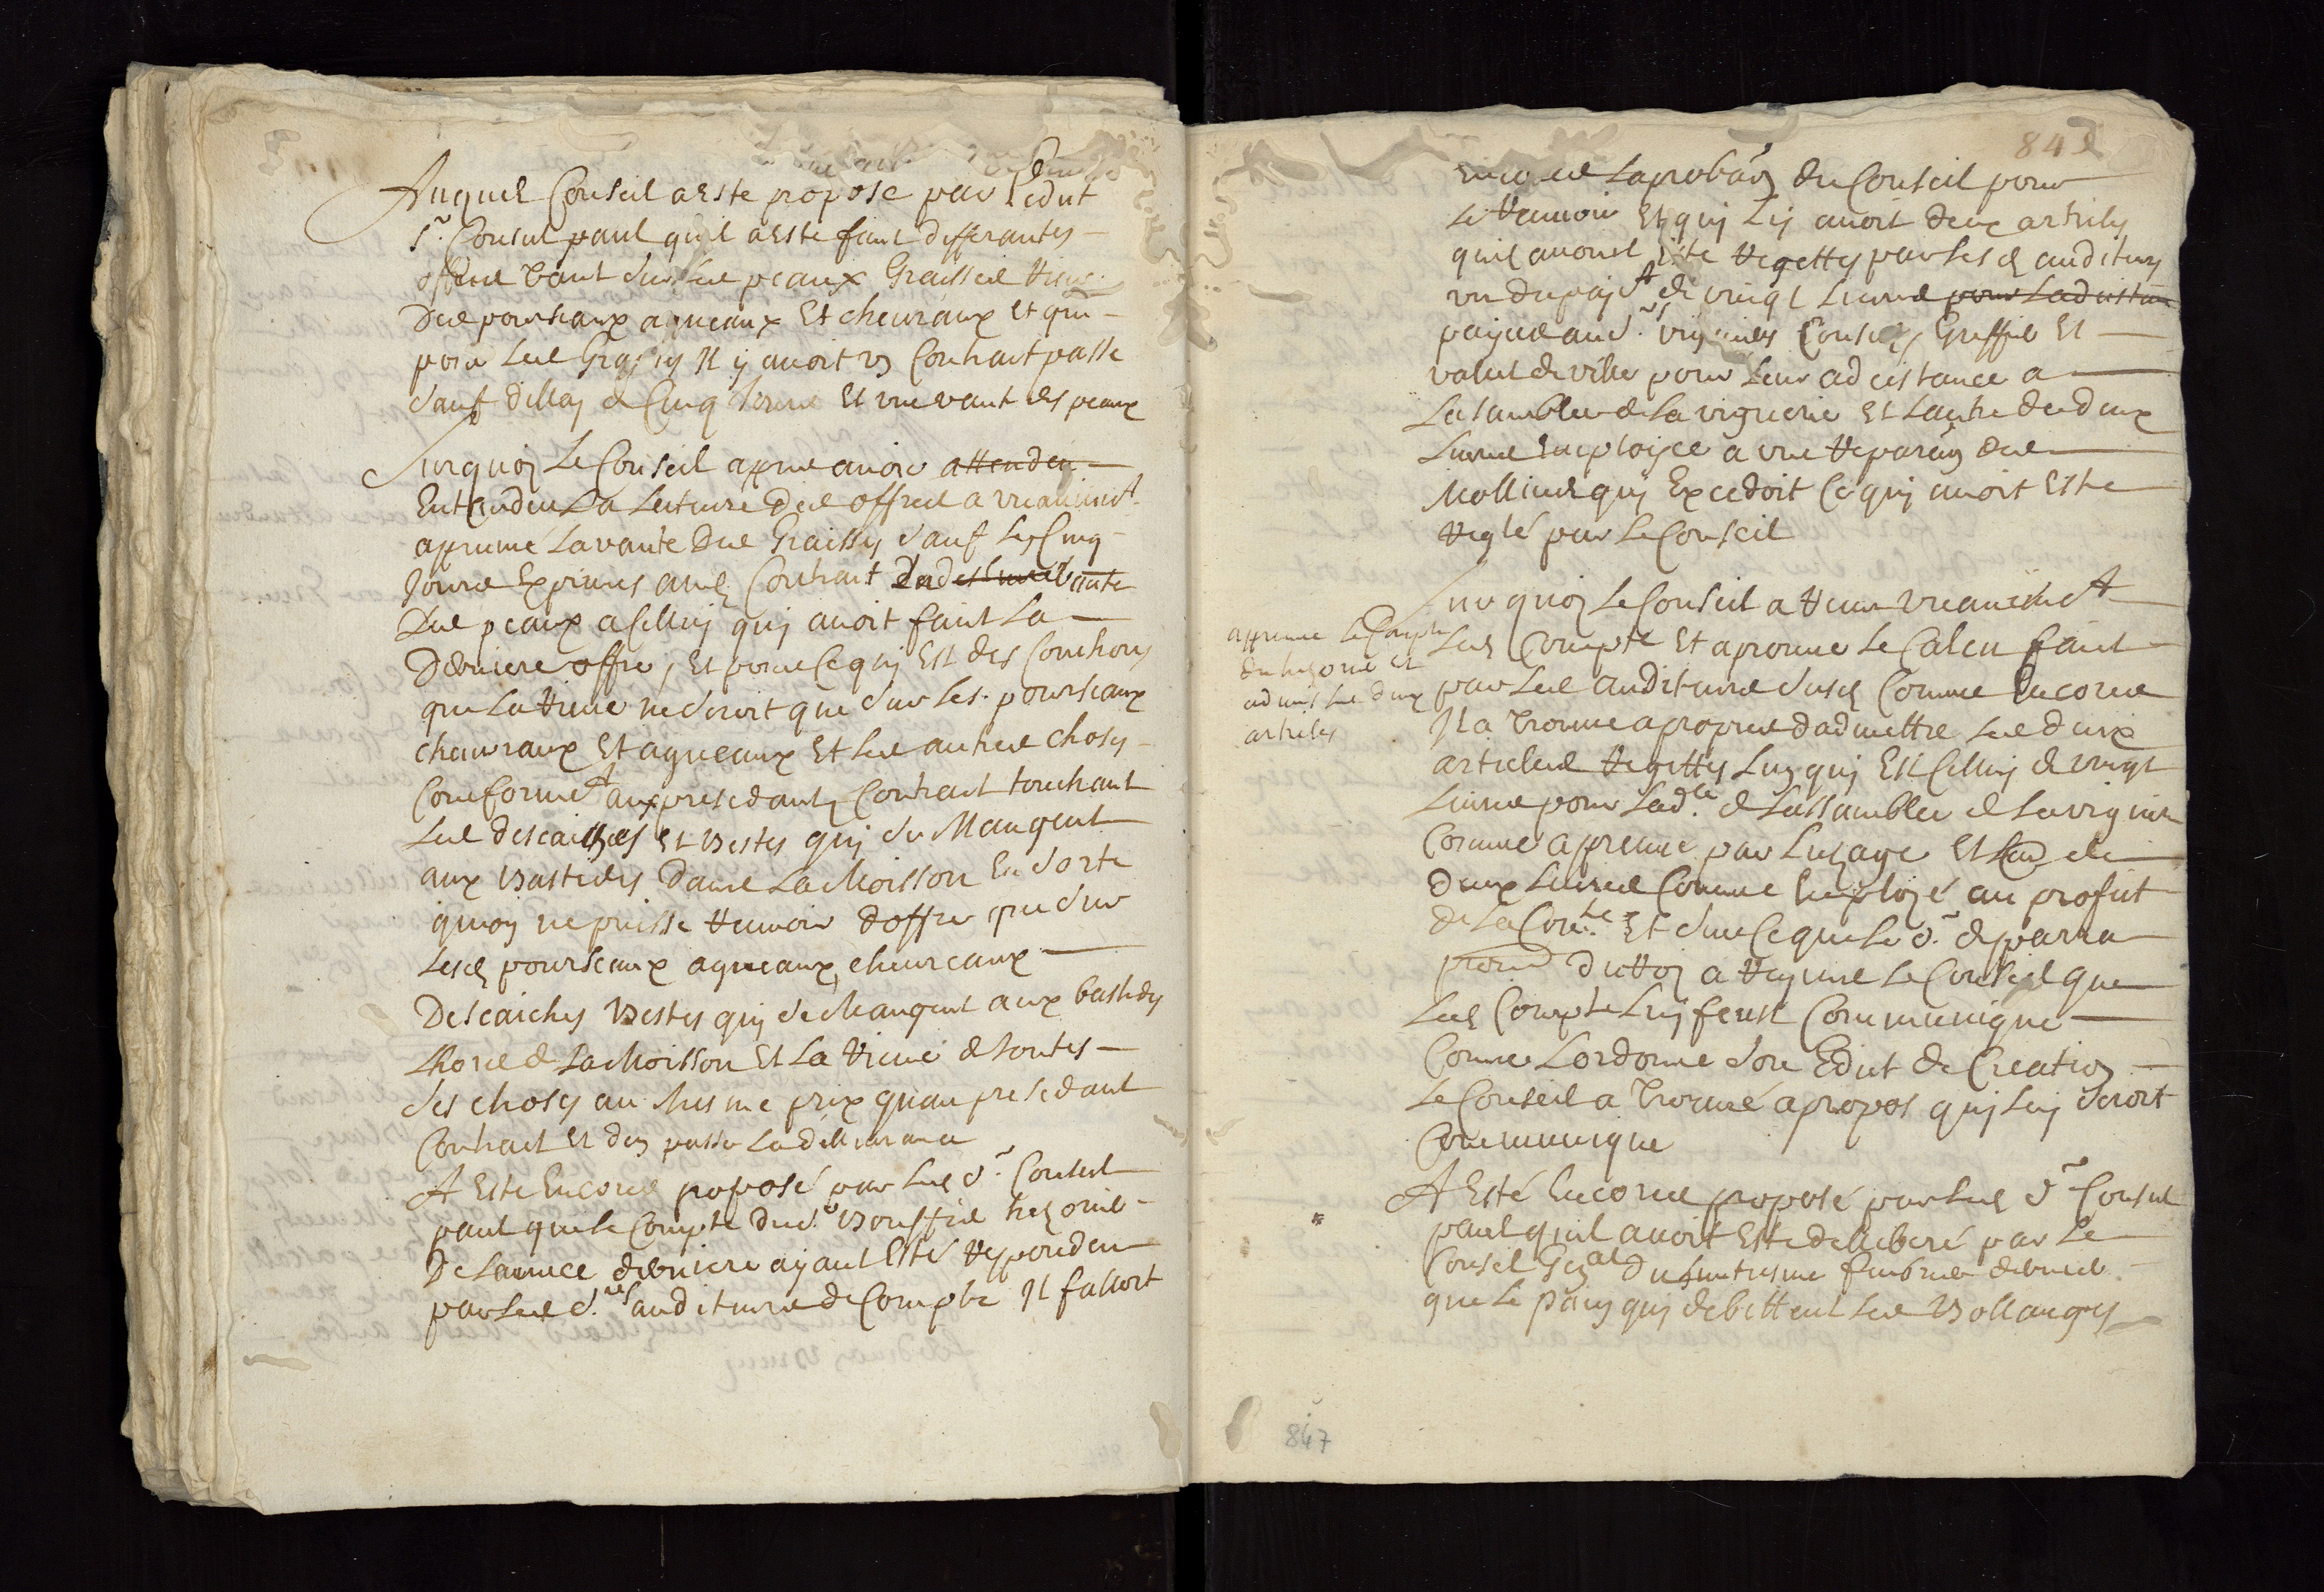 Auquel Conseil a este propose par ledit
sr. Consul paul quil a este faict differantes
offres tant sur les peaux Graisses Reve
des pourseaux agneaux Et cheuraux et que
pour les Graisses Il y auoit un Contract passe
sauf dellay de Cinq Jours Et une vante des peaux
Surquoy Le Conseil apres auoir attendeu
Entendeu La lecture des offres a unanimt
apreuué La vante des Graisses sauf les Cinq
Jours Expires aued Contract Lad vante
Des peaux a Celluy quy auoit faict La
Derniere offre, Et pour Ce quy Est des
que La Reve ne seroit que sur les pourseaux
cheuraux Et agneaux Et les autres choses
Conformet aux presedants Contract touchant
Les Et bestes quy se Mangent
aux bastides Dans La Moisson En sorte
quon ne puisse Reuoir doffre que sur
lesd pourseaux agneaux cheureaux
bestes quy se Mangent aux bastides
hors de La Moisson Et La Reve de toutes
ses choses au mesme prix quau presedant
Contract Et den passer La dellivrance
A Este Encores proposé par led sr. Consul
paul que le Compte dud sr. bouffier trezorier
De Lannee derniere ayant Esté Respondeu
par les srs auditeurs de Compte Il falloit
842
encores Laprobaon du Conseil pour
Le Reuoir Et quy Luy auoit deux articles
quil auoint Este Regettes par lesd auditeurs
un du payt de vingt Liures pour Ladcistan
payes aud. srs viguier Consuls Greffier Et
valet de ville pour Leur adcistance a
Lasamblee de La viguerie Et Lautre de deux
Liures Emploijee a une Reparaon des
Mollins quy Excedoit Ce quy auoit Este
Reglé par Le Conseil
appreuue le Compte
du trezorier et
admis les deux
articles
Sur quoy Le Conseil a Reveu unanimet
Led Compte Et aprouue Le Calcu faict
par les auditeurs susd Comme Encores
Il a trouue apropres dadmettre les deux
articles Regettes Lun quy Est Celluy de vingt
Liures pour Lad.ce de Lassamblee de La viguerie
Comme appreuue par Luzage Et Lau de
Deux Liures Comme Emploijé au profict
De La Comté. Et sur Ce que Le sr. de parra
procur du Roy a Requis Le Conseil que
Led Compte Luy feust Communique
Comme Lordonne son Edict de Creation
Le Conseil a trouué apropos quy Luy seroit
Communique
* A Esté Encores proposé par led sr Consul
paul quil auoit Este delliberé par Le
Consel Genal du huitiesme feubrier dernier
que le pain quy debittent les bollangers
847